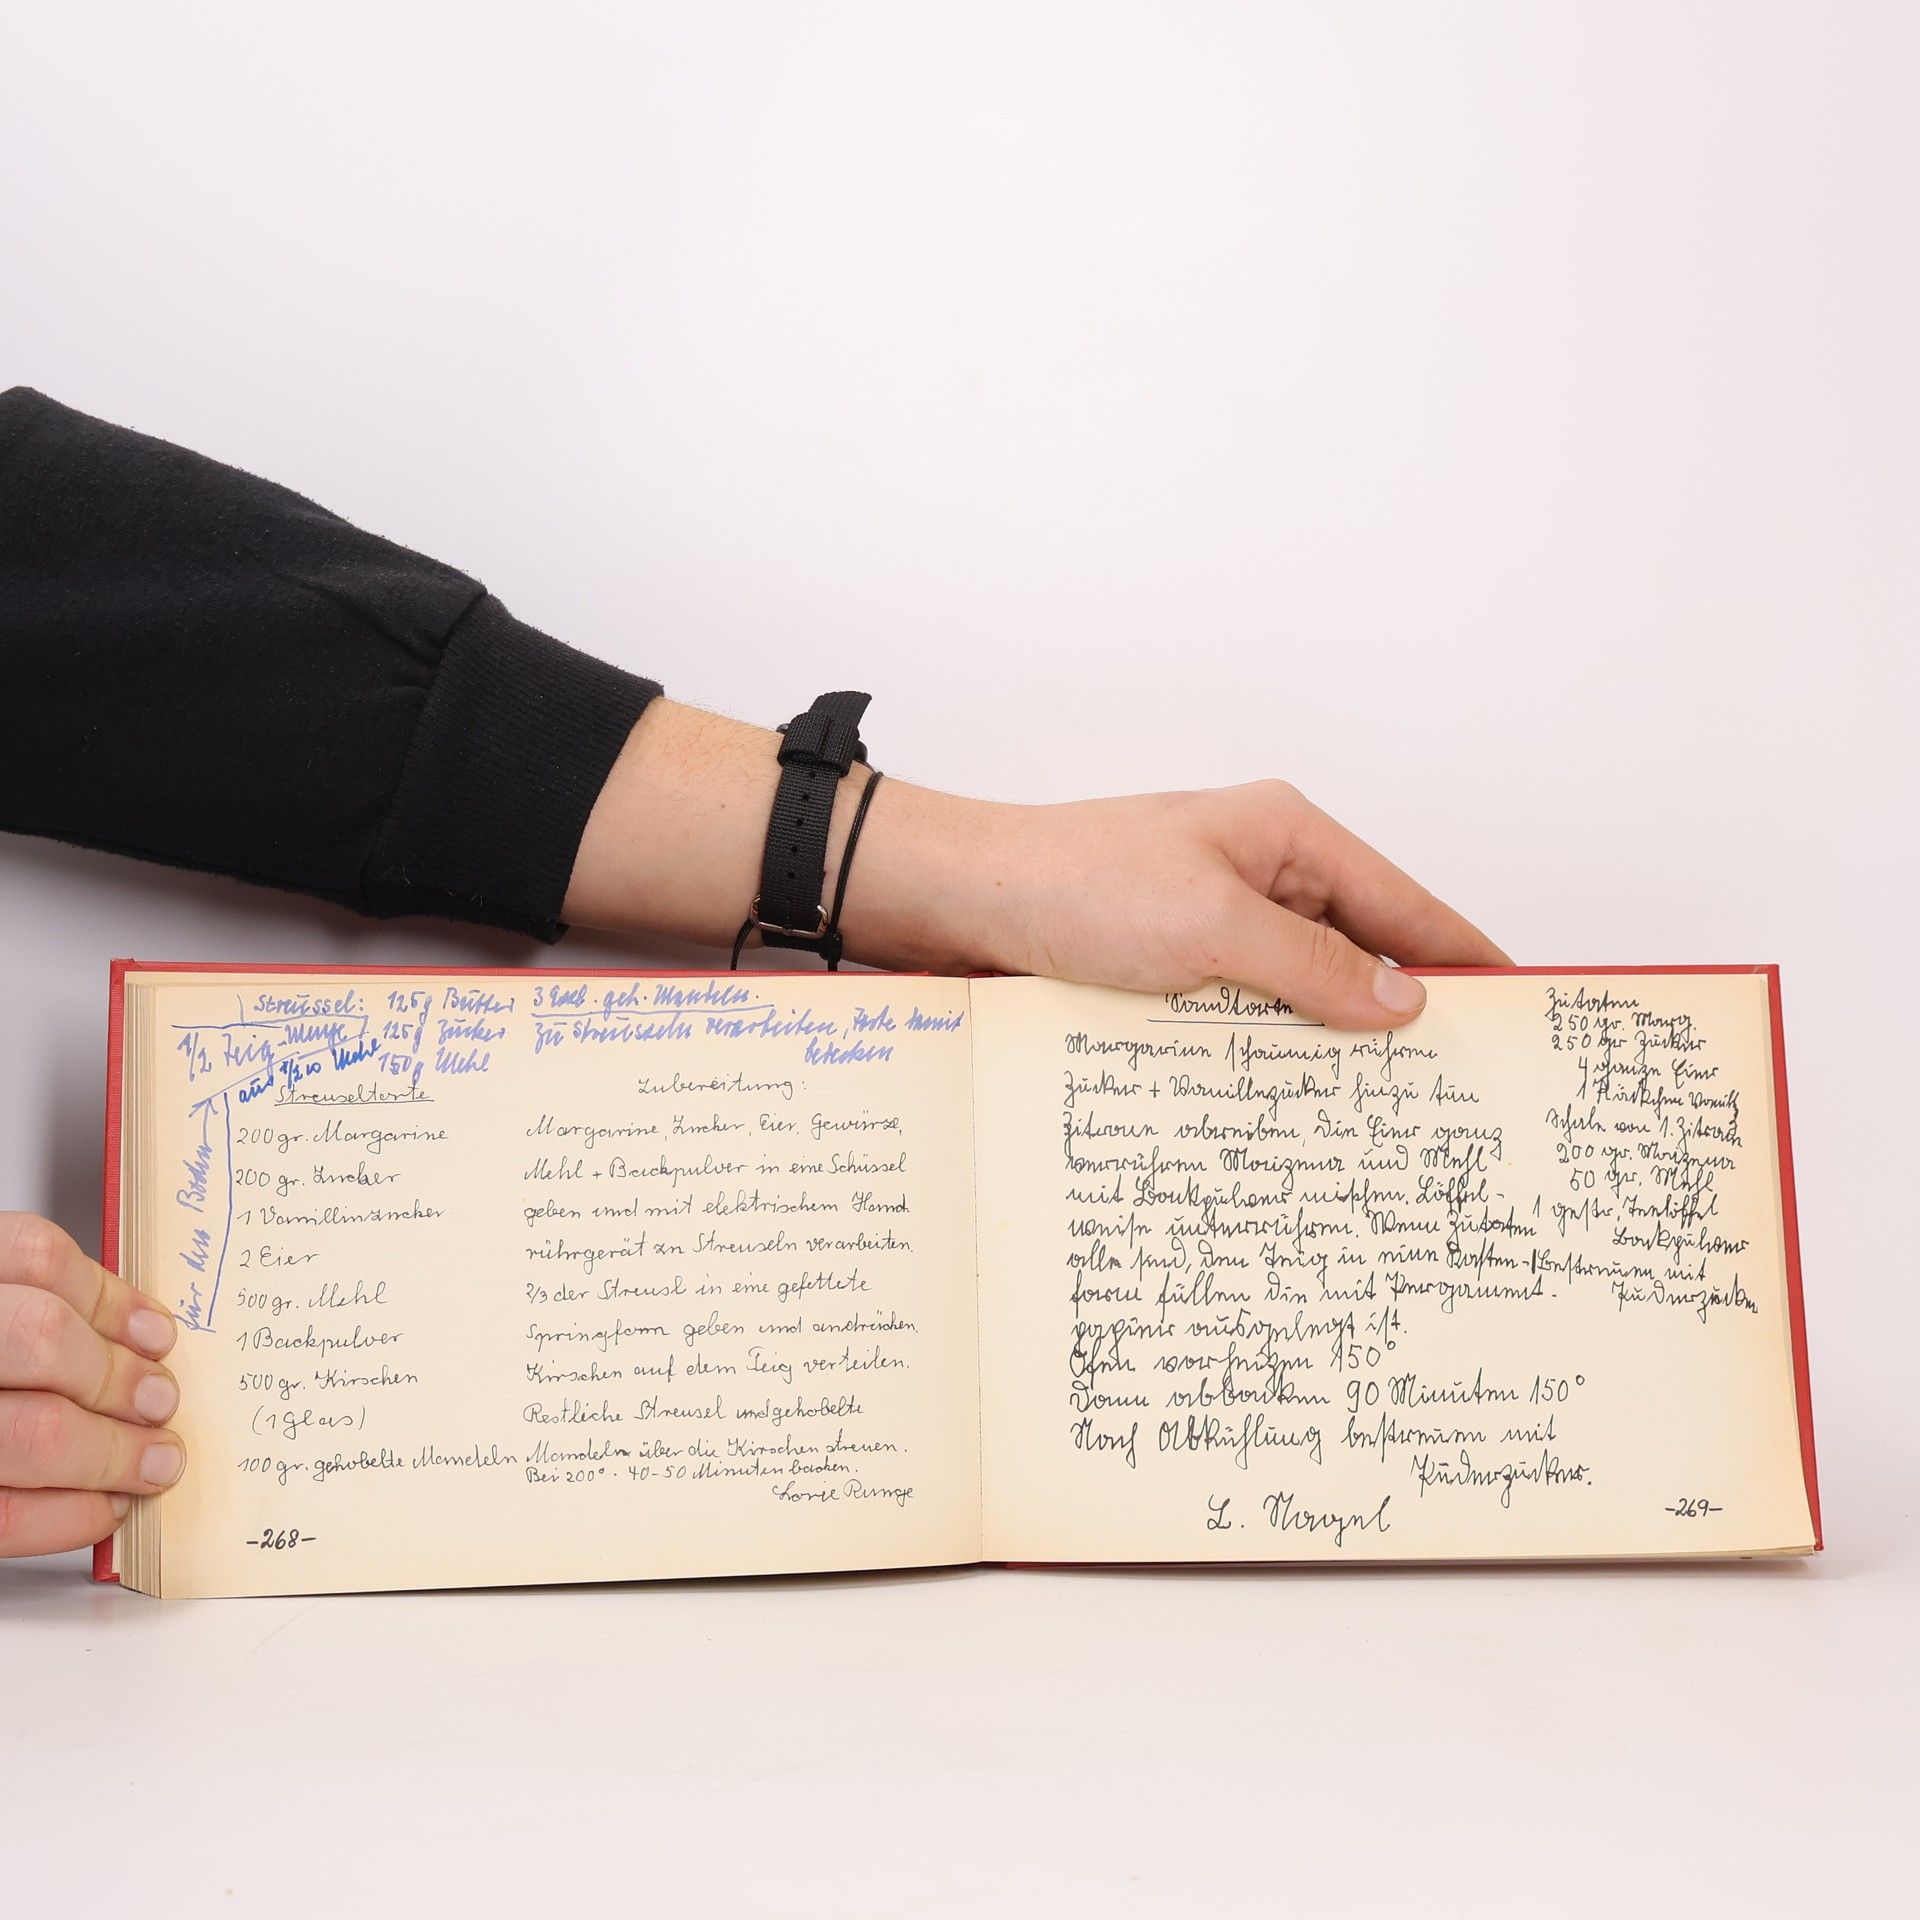 Streussel: 125g Butter 3 Essl. geh. Mandeln.
1/2 Teig-Menge 125g Zucker zu Streuseln verarbeiten, Torte damit
aus 1/2 Mehl 150g Mehl bedecken
für den Boden
Streuseltorte
200 gr. Margarine
200 gr. Zucker
1 Vanillinzucker
2 Eier
500 gr. Mehl
1 Backpulver
500 gr. Kirschen
(1 Glas)
100 gr. gehobelte Mandeln
Zubereitung:
Margarine, Zucker, Eier, Gewürze,
Mehl + Backpulver in eine Schüssel
geben und mit elektrischem Hand-
rührgerät zu Streuseln verarbeiten.
2/3 der Streusl in eine gefettete
Springform geben und andrücken.
Kirschen auf dem Teig verteilen.
Restliche Streusel und gehobelte
Mandeln über die Kirschen streuen.
Bei 200° · 40-50 Minuten backen.
Runge
-268-
Sandtorte
Margarine schaumig rühren
Zucker + Vanillezucker hinzu tun
Zitrone abreiben, die Eier ganz
verrühren Maizena und Mehl
mit Backpulver mischen. Löffel-
weise unterrühren. Wenn Zutaten
alle sind, den Teig in eine Kasten-
form füllen die mit Pergament-
papier ausgelegt ist.
Ofen vorheizen 150°
Dann abbacken 90 Minuten 150°
Nach Abkühlung bestreuen mit
Puderzucker.
L. Nagel
Zutaten
250 gr. Marg.
250 gr Zucker
4 ganze Eier
1 Päckchen Vanillz
Schale von 1. Zitrone
200 gr. Maizena
50 gr. Mehl
1 gestr. Teelöffel
Backpulver
Bestreuen mit
Puderzucker
-269-